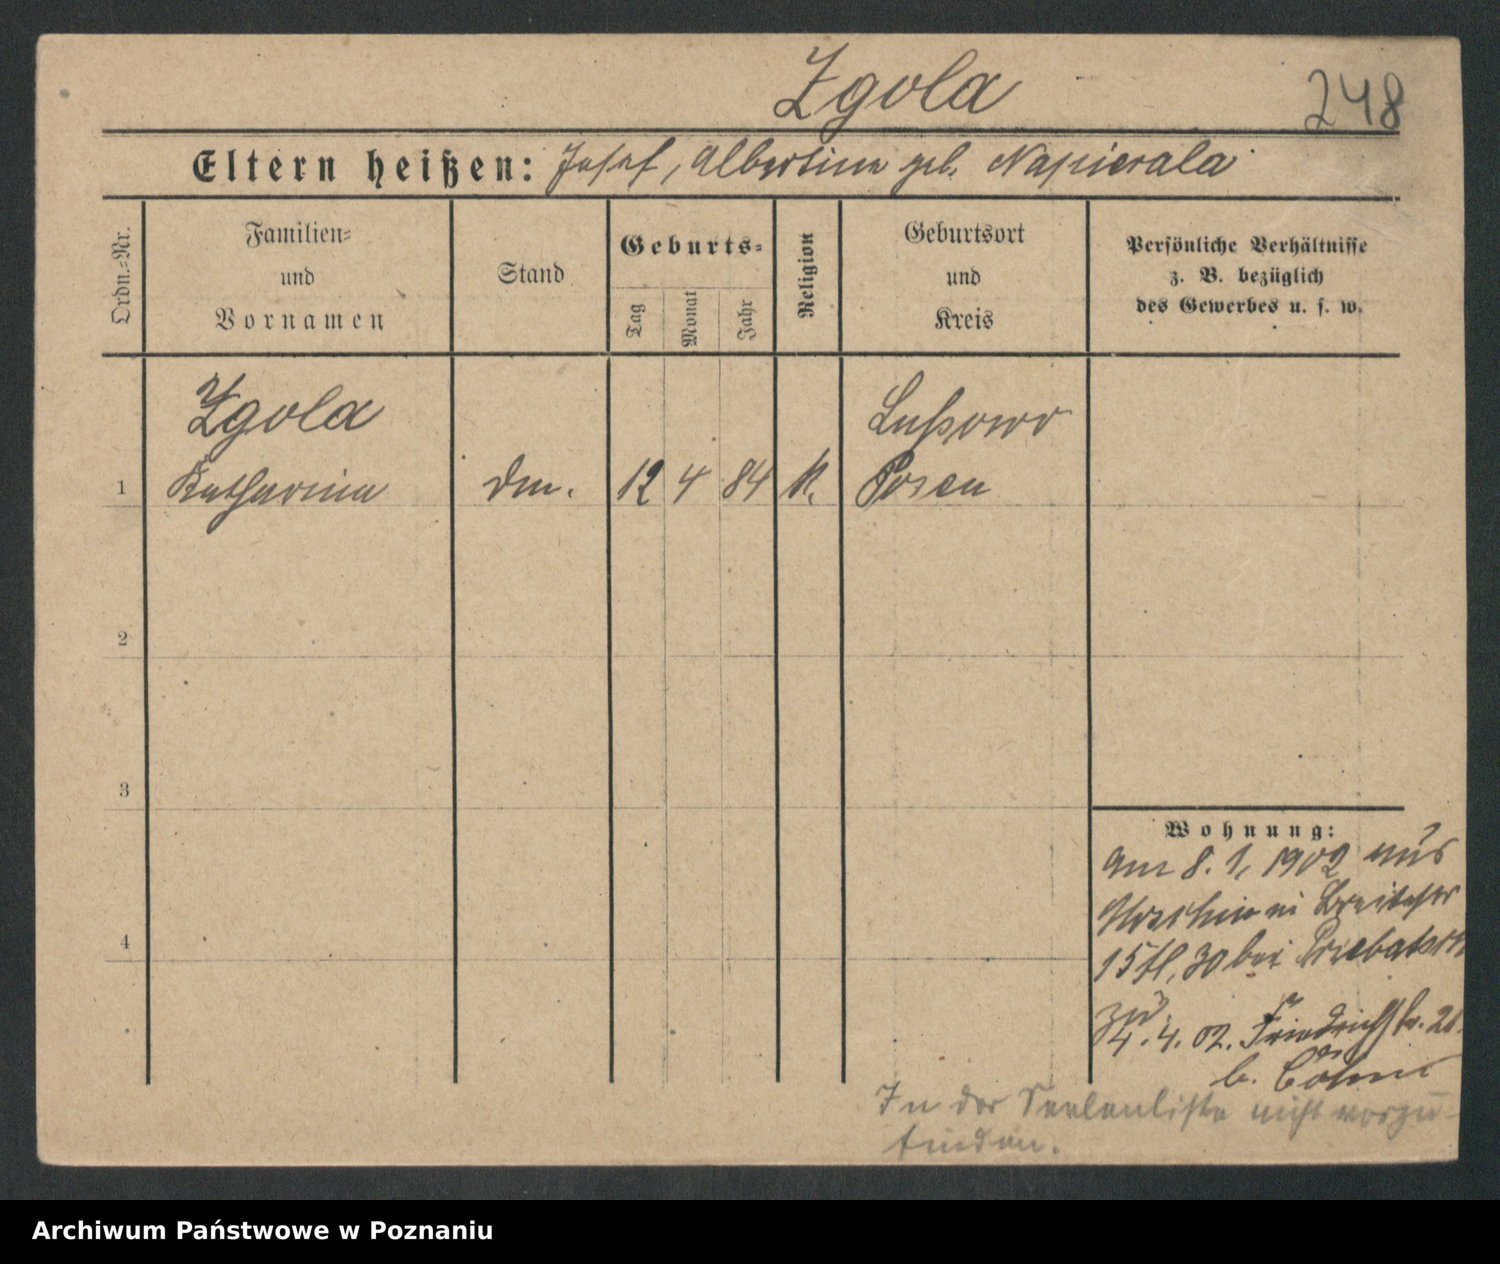 Zgola
248
Eltern heißen: Josef, Albertine geb. Napierala
Ordn.=Nr.
Familien=
und
Vornamen
Stand
Geburts=
Tag
Monat
Jahr
Religion
Geburtsort
und
Kreis
Persönliche Verhältnisse
z. B. bezüglich
des Gewerbes u. s. w.
Zgola
Lussowo
1 Katharina Dm. 12 4 84 K. Posen
2
3
4
Wohnung:
am 8. 1, 1902 aus
Breitestr
15 II, 30 bei
4. 4. 02. Friedrichstr. 21
b. Böhm
In der Seelenliste nicht vorzu-
finden.
Archiwum Państwowe w Poznaniu